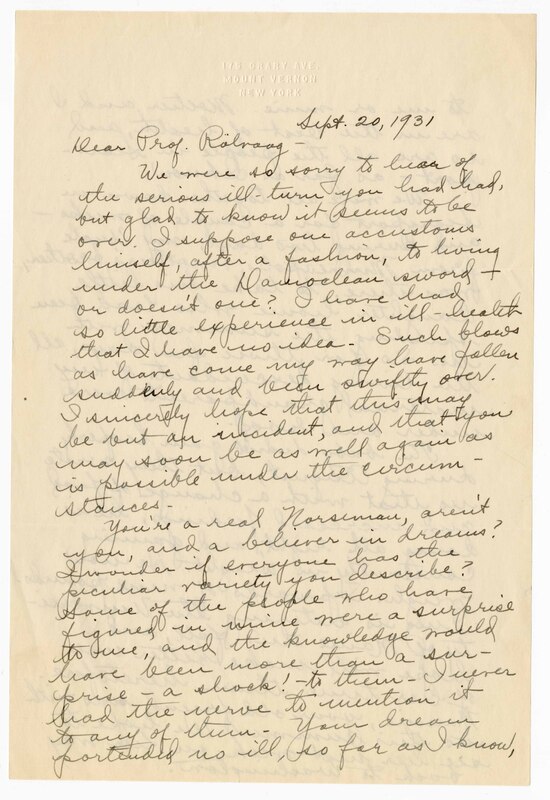 176 CRARY AVE.
MOUNT VERNON
NEW YORK
Sept. 20, 1931
Dear Prof. Rölvaag -
We were so sorry to hear of
the serious ill-turn you had had,
but glad to know it seems to be
over. I suppose one accustoms
himself, after a fashion, to living
under the Damoclean sword -
or doesn't one? I have had
so little experience in ill-health
that I have no idea. Such blows
as have come my way have fallen
suddenly and been swiftly over.
I sincerely hope that this may
be but an incident, and that you
may soon be as well again as
is possible under the circum-
stances.
You're a real Norseman, aren't
you, and a believer in dreams?
I wonder if everyone has the
peculiar variety you describe?
Some of the people who have
figured in mine were a surprise
to me, and the knowledge would
have been more than a sur-
prise - a shock! - to them - I never
had the nerve to mention it
to any of them - Your dream
portended no ill, so far as I know,